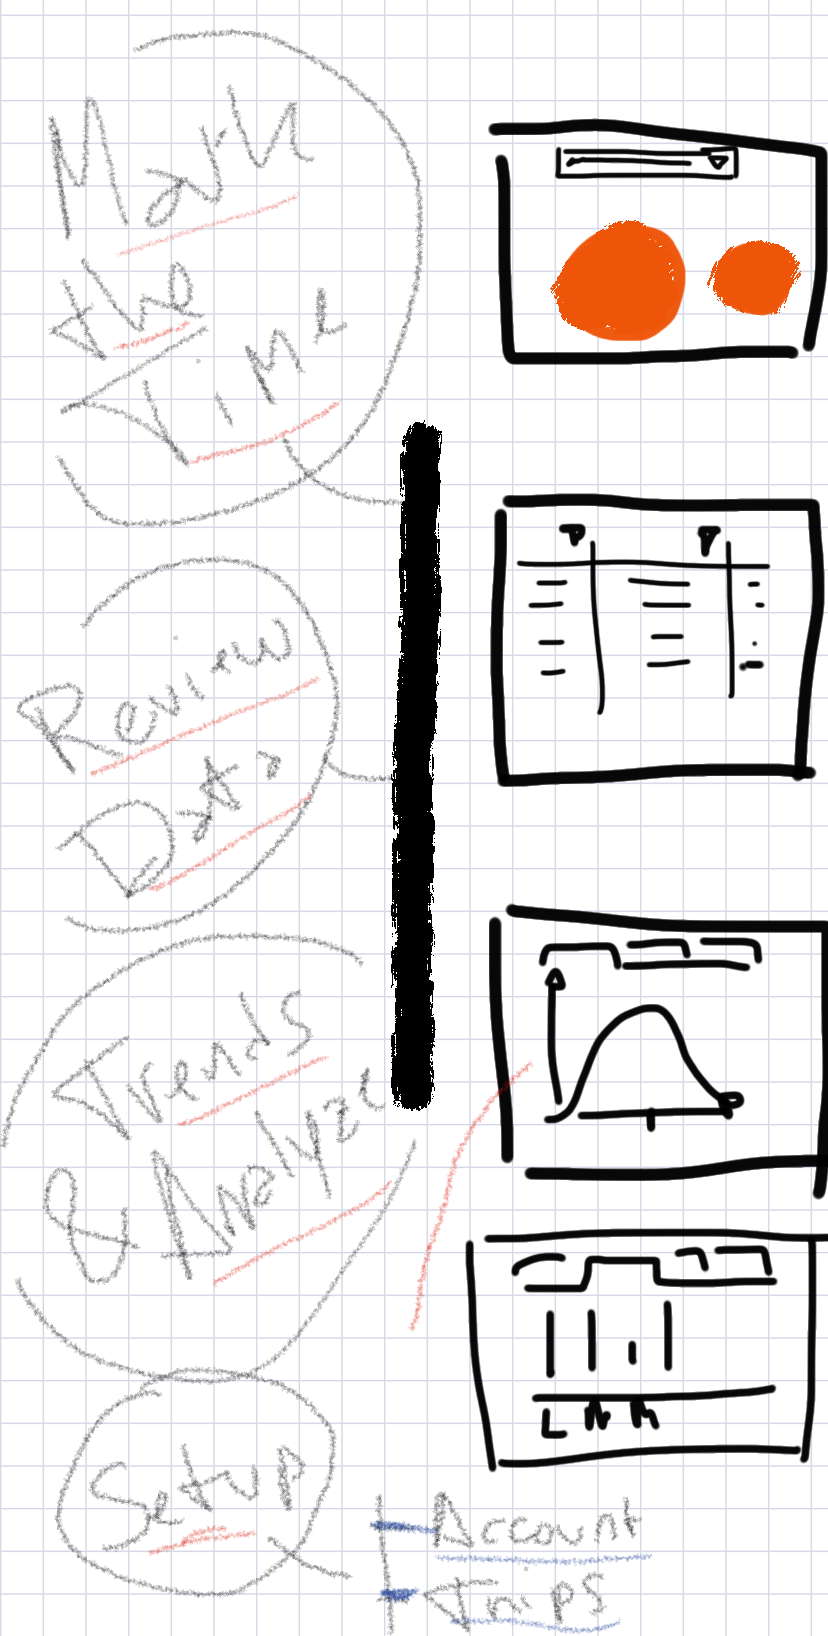 Mark
the
Time
Review
Data
Trends
& Analyze
Setup
Account
Trips